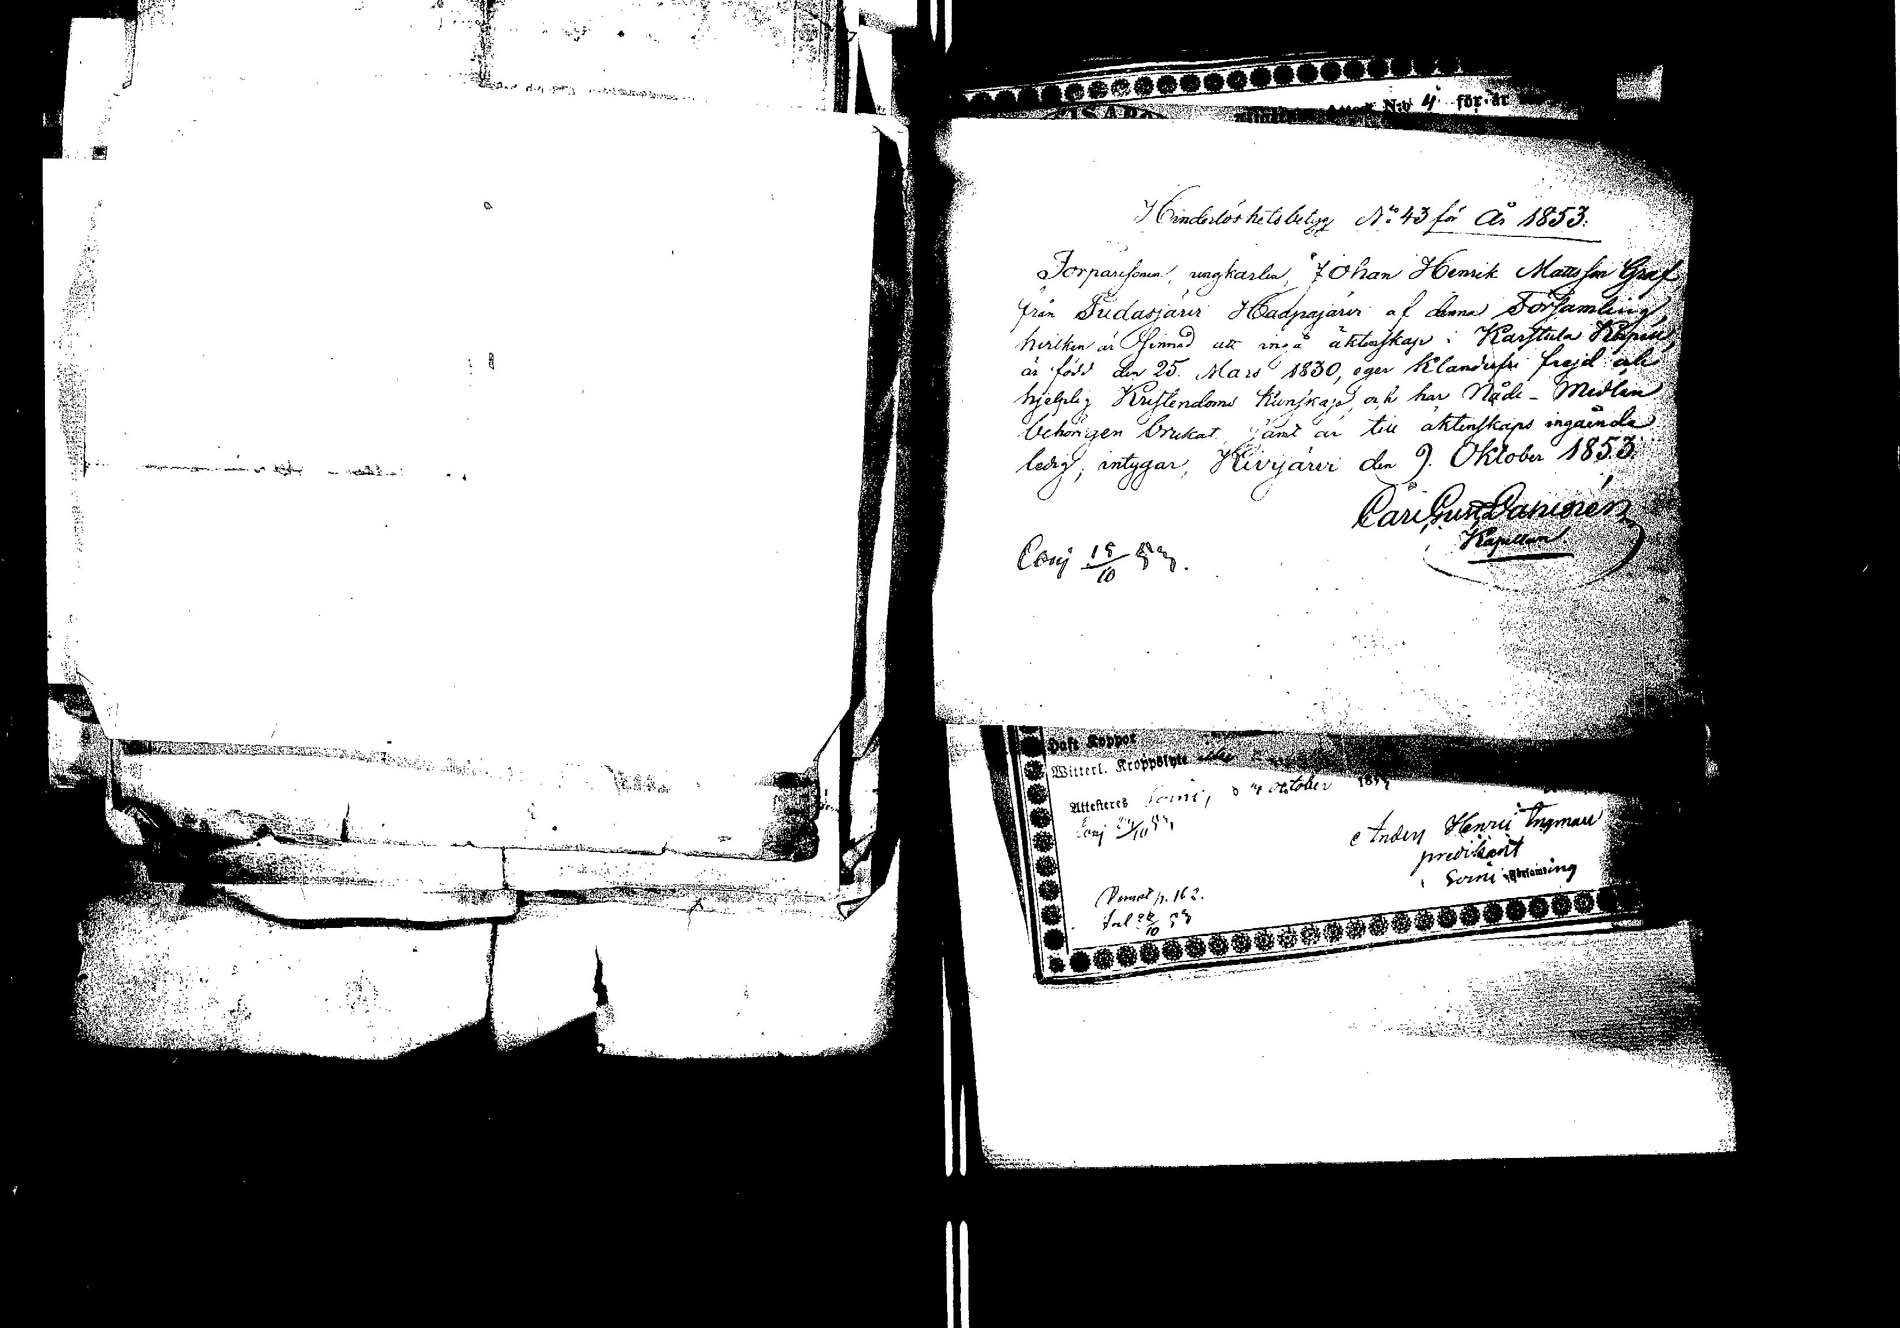 Attest N:o 4 för år
Hinderlöshetsbetyg No 43 för År 1853.
Torparesonen, ungkarlen, Johan Henrik Mattsson Graf
från Pudasjärvi af denna Församling,
hvilken är sinnad att ingå äktenskap i Karstula Kapell,
är född den 25. Mars 1830, eger klanderfri frejd och
hjelplig Kristendoms Kunskap, och har Nåde-Medlen
behörigen brukat, samt är till äktenskaps ingående
ledig, intygar, Kivijärvi den 9. Oktober 1853.
Carl Gust. Danienén
Kapellan
Conj 15/10 53.
Haft Koppor
Witterl. Kroppslyte
Attesteres Soini, d 4 October 1853
Conj 10 53
Anders Henric Ingman
predikant
Soini Församling
p. 162.
10 53